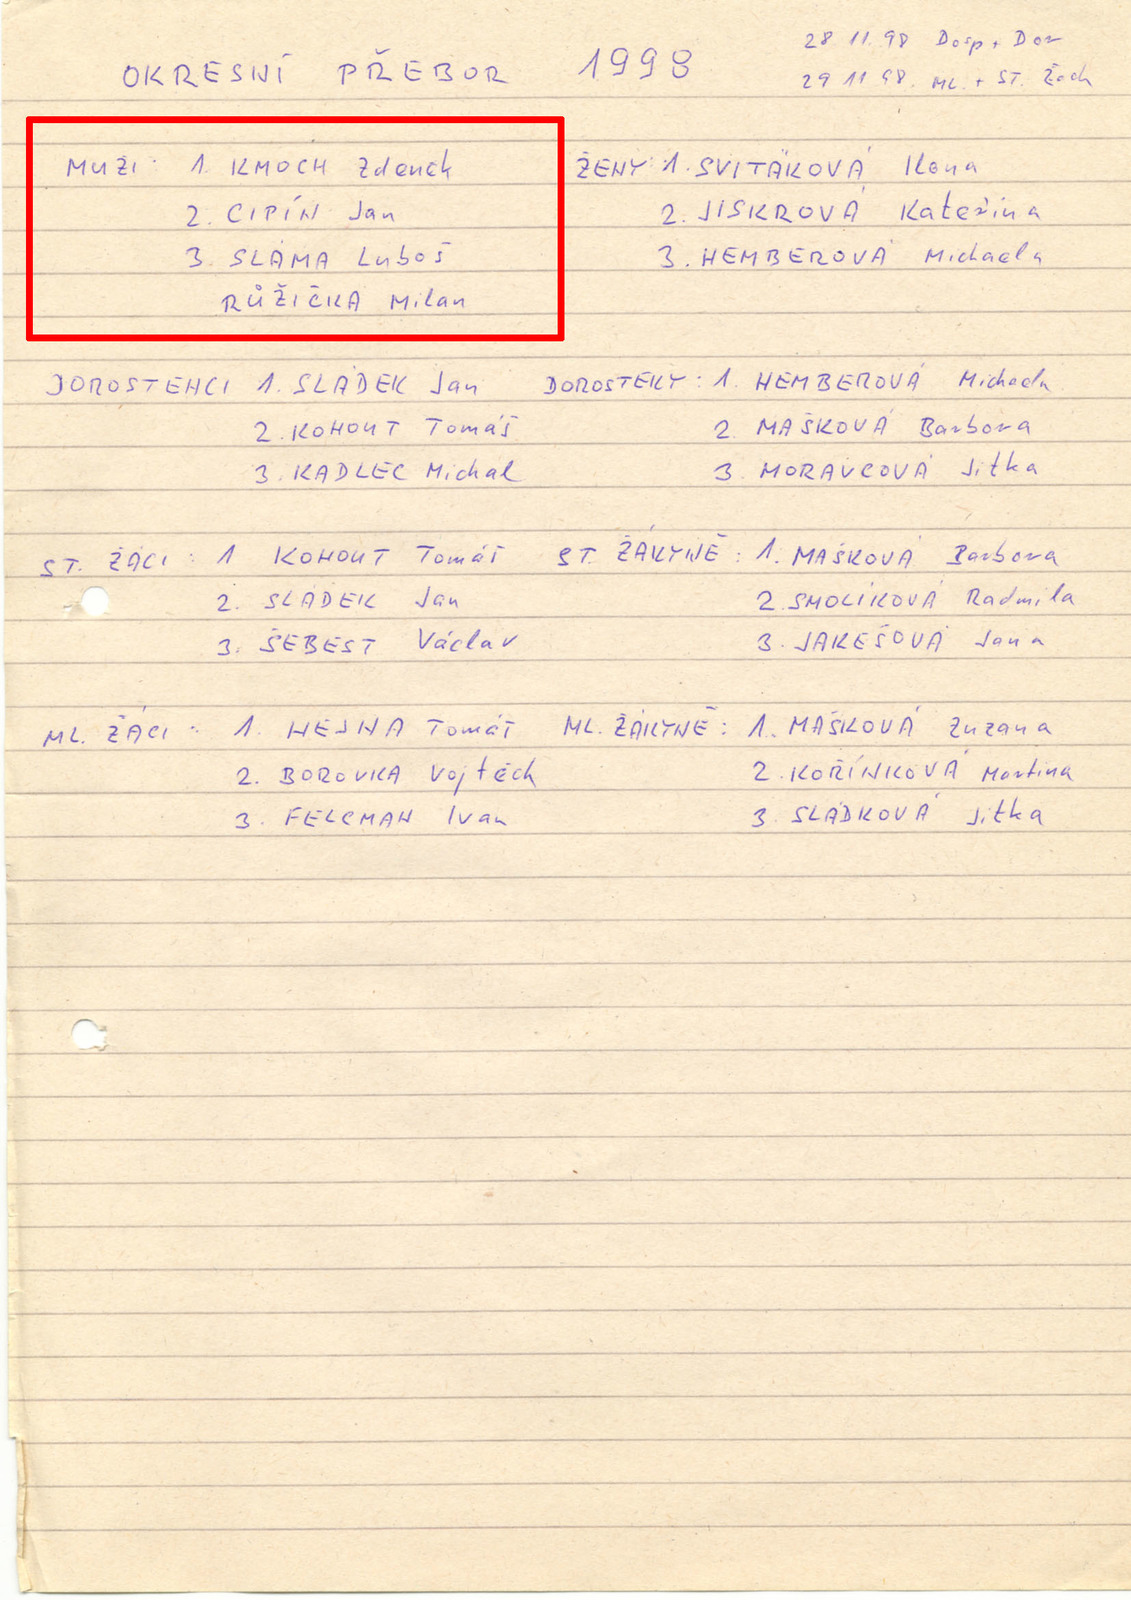 OKRESNÍ PŘEBOR 1998
28 11. 98 Dosp + Dor
29 11 98. ML. + ST. Žach
MUŽI: 1. KMOCH Zdenek
2. CIPÍN Jan
3. SLÁMA Luboš
RŮŽIČKA Milan
ŽENY: 1. SVITÁKOVÁ Ilona
2. JISKROVÁ Kateřina
3. HEMBEROVÁ Michaela
DOROSTENCI 1. SLÁDEK Jan
2. KOHOUT Tomáš
3. KADLEC Michal
DOROSTENKY: 1. HEMBEROVÁ Michaela
2. MAŠKOVÁ Barbora
3. MORAVCOVÁ Jitka
ST. ŽÁCI: 1 KOHOUT Tomáš
2. SLÁDEK Jan
3. ŠEBEST Václav
ST. ŽÁKYNĚ: 1. MAŠKOVÁ Barbora
2. SMOLÍKOVÁ Radmila
3. JAKEŠOVÁ Jana
ML. ŽÁCI: 1. HEJNA Tomáš
2. BOROVKA Vojtěch
3. FELCMAN Ivan
ML. ŽÁKYNĚ: 1. MAŠKOVÁ Zuzana
2. KOŘÍNKOVÁ Martina
3. SLÁDKOVÁ Jitka